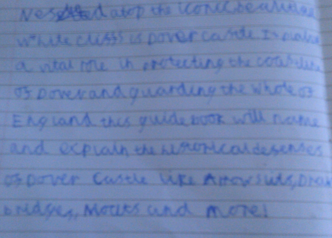 Nes atop the iconic beautiful
white cliffs is Dover Castle It
a vital role in protecting the coastline
of Dover and guarding the whole of
England this guide book will name
and explain the historical defenses
of Dover Castle like Arrow slits, Draw
bridges, Moats and more!